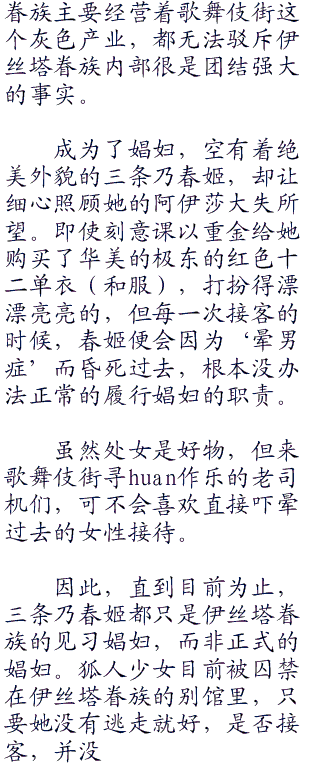 眷族主要经营着歌舞伎街这
个灰色产业，都无法驳斥伊
丝塔眷族内部很是团结强大
的事实。
成为了娼妇，空有着绝
美外貌的三条乃春姬，却让
细心照顾她的阿伊莎大失所
望。即使刻意课以重金给她
购买了华美的极东的红色十
二单衣（和服），打扮得漂
漂亮亮的，但每一次接客的
时候，春姬便会因为‘晕男
症’而昏死过去，根本没办
法正常的履行娼妇的职责。
虽然处女是好物，但来
歌舞伎街寻huan作乐的老司
机们，可不会喜欢直接吓晕
过去的女性接待。
因此，直到目前为止，
三条乃春姬都只是伊丝塔眷
族的见习娼妇，而非正式的
娼妇。狐人少女目前被囚禁
在伊丝塔眷族的别馆里，只
要她没有逃走就好，是否接
客，并没